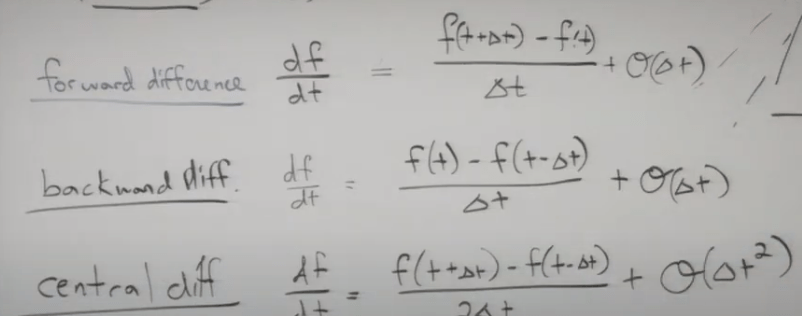 forward difference df/dt = (f(t+Δt) - f(t))/Δt + O(Δt)
backward diff. df/dt = (f(t) - f(t-Δt))/Δt + O(Δt)
central diff df/dt = (f(t+Δt) - f(t-Δt))/2Δt + O(Δt²)